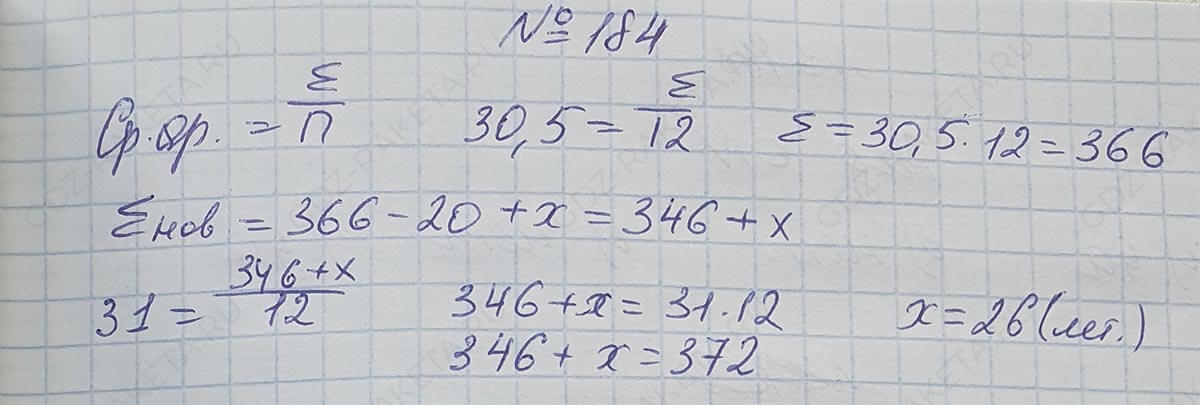 № 184
Ср. ар. = Σ/n   30,5 = Σ/12   Σ = 30,5 · 12 = 366
Σнов = 366 - 20 + x = 346 + x
31 = (346 + x)/12   346 + x = 31 · 12   x = 26 (лет.)
346 + x = 372